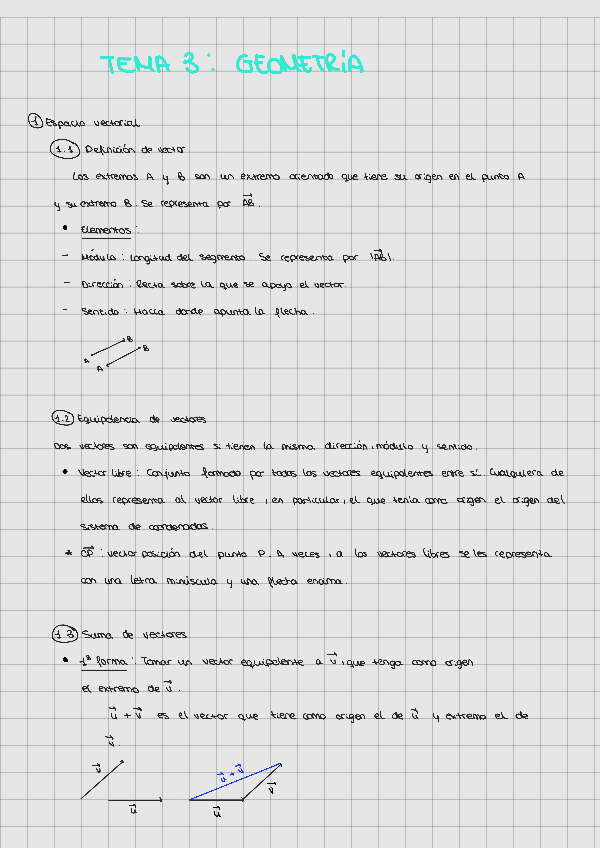 TEMA 3: GEOMETRÍA
1 Espacio vectorial
1.1 Definición de vector
Los extremos A y B son un extremo orientado que tiene su origen en el punto A
y su extremo B. Se representa por A⃗B⃗.
• Elementos:
- Módulo: Longitud del segmento. Se representa por |A⃗B⃗|.
- Dirección: Recta sobre la que se apoya el vector.
- Sentido: Hacia donde apunta la flecha.
B
B
A
A
1.2 Equipolencia de vectores
Dos vectores son equipolentes si tienen la misma dirección, módulo y sentido.
• Vector libre: Conjunto formado por todos los vectores equipolentes entre sí. Cualquiera de
ellos representa al vector libre, en particular, el que tenía como origen el origen del
sistema de coordenadas.
* O⃗P⃗: vector posición del punto P. A veces, a los vectores libres se les representa
con una letra minúscula y una flecha encima.
1.3 Suma de vectores
• 1ª forma: Tomar un vector equipolente a v⃗, que tenga como origen
el extremo de v⃗.
u⃗ + v⃗ es el vector que tiene como origen el de u⃗ y extremo el de
v⃗.
v⃗
u⃗
u⃗ + v⃗
v⃗
u⃗